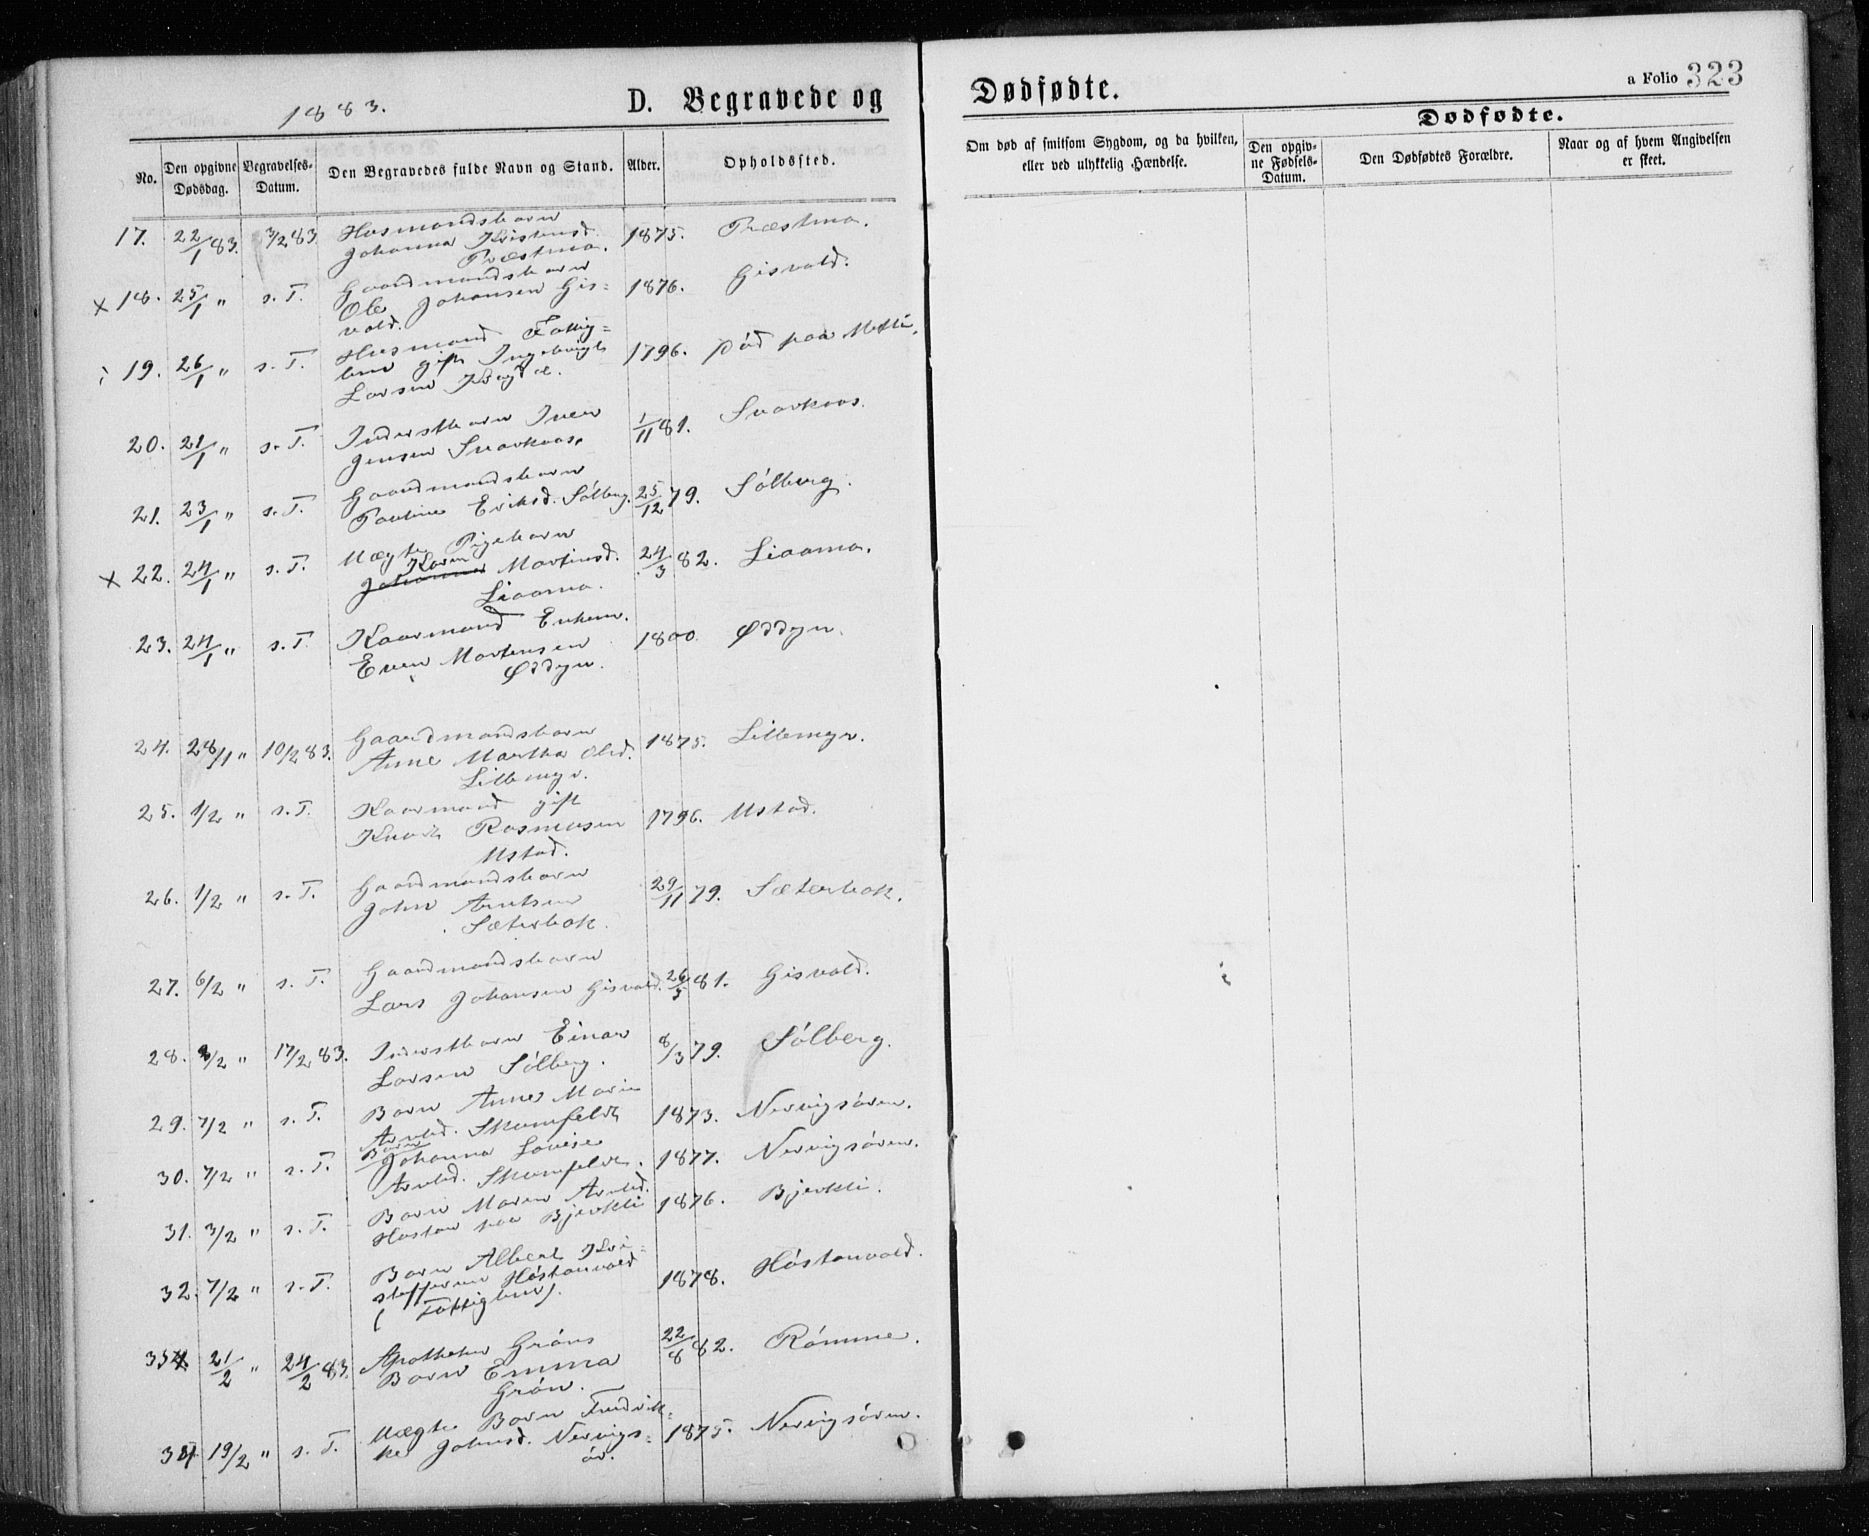 1883.
D. Begravede og
Dødfødte.
a Folio 323
No.
Den opgivne Dødsdag.
Begravelses-Datum.
Den Begravedes fulde Navn og Stand.
Alder.
Opholdssted.
Om død af smitsom Sygdom, og da hvilken,
eller ved ulykkelig Hændelse.
Dødfødte.
Den opgiv-
ne Fødsels-
Datum.
Den Dødfødtes Forældre.
Naar og af hvem Angivelsen
er skeet.
17. 22/1 83. 3/2 83 Husmandsbarn 1875. Præstmo.
Johanna Kristensd.
Præstmo.
x 18. 25/1 " s. T. Gaardmandsbarn 1876. Gisvold.
Ole Johansen Gis-
vold.
19. 26/1 " s. T. Husmand Fattig- 1796. Død paa
lem gift Ingebrigt
Larsen
20. 21/1 " s. T. Inderstbarn Iver 1/11 81. Svarkaas.
Jensen Svarkaas.
21. 23/1 " s. T. Gaardmandsbarn
Pauline Eriksd. Sólberg. 25/12 79. Sólberg.
x 22. 24/1 " s. T. Uægte Pigebarn 24/3 82. Liaamo.
Karen
Johanna Martinsd.
Liaamo.
23. 24/1 " s. T. Kaarmand Enkem. 1800. Øddyn.
Even Mortensen
Øddyn.
24. 28/1 " 10/2 83. Gaardmandsbarn 1875. Lillemyr.
Anne Martha Olsd.
Lillemyr.
25. 1/2 " s. T. Kaarmand gift 1796. Ustad.
Rasmusen
Ustad.
26. 1/2 " s. T. Gaardmandsbarn 29/11 79. Sæterbak.
John Arntsen
Sæterbak.
27. 6/2 " s. T. Gaardmandsbarn
Lars Johansen Gisvold. 26/5 81. Gisvold.
28. 8/2 " 17/2 83. Inderstbarn Einar 8/3 79. Sólberg.
Larsen Sólberg.
29. 7/2 " s. T. Barn Anne Marie 1873. Nervigsóren.
Arntsd. Skamfeldt
30. 7/2 " s. T. Barn
Johanna Lovise 1877. Nervigsóren.
Arntsd. Skamfeldt.
31. 3/2 " s. T. Barn Maren Arntsd. 1876. Bjerkli.
paa Bjerkli
32. 7/2 " s. T. Barn Albert Kri-
stoffersen Hóstonvold 1878. Hóstonvold.
( Fattiglem).
21/2 " 24/2 83. Apotheker Gróns 22/8 82. Rómme.
Barn Emma
Grón.
34 19/2 " s. T. Uægte Barn Fredrik-
ke Johnsd. Nervigs- 1875. Nervigsóren.
ór.